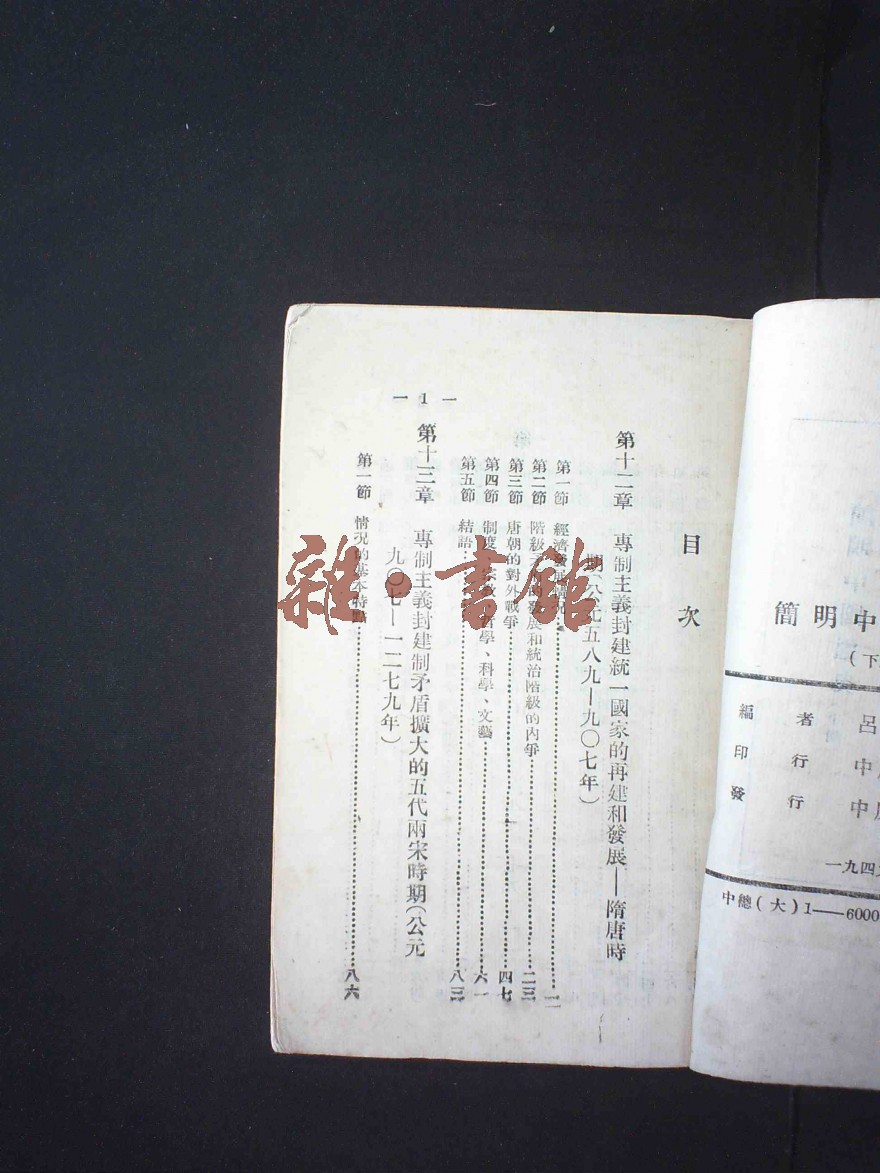 簡明中
(下
編者 呂
印行 中
發行 中
一九四
中總(大)1——6000
目次
第十二章 專制主義封建統一國家的再建和發展—隋唐時
期(公元五八九—九〇七年)
第一節 經濟發展情況
第二節 階級 的發展和統治階級的內爭 二三
第三節 唐朝的對外戰爭 四七
第四節 制度、宗教、哲學、科學、文藝 六一
第五節 結語 八三
第十三章 專制主義封建制矛盾擴大的五代兩宋時期(公元
九〇七—一二七九年)
第一節 情況的基本特點 八六
— 1 —
雜·書館